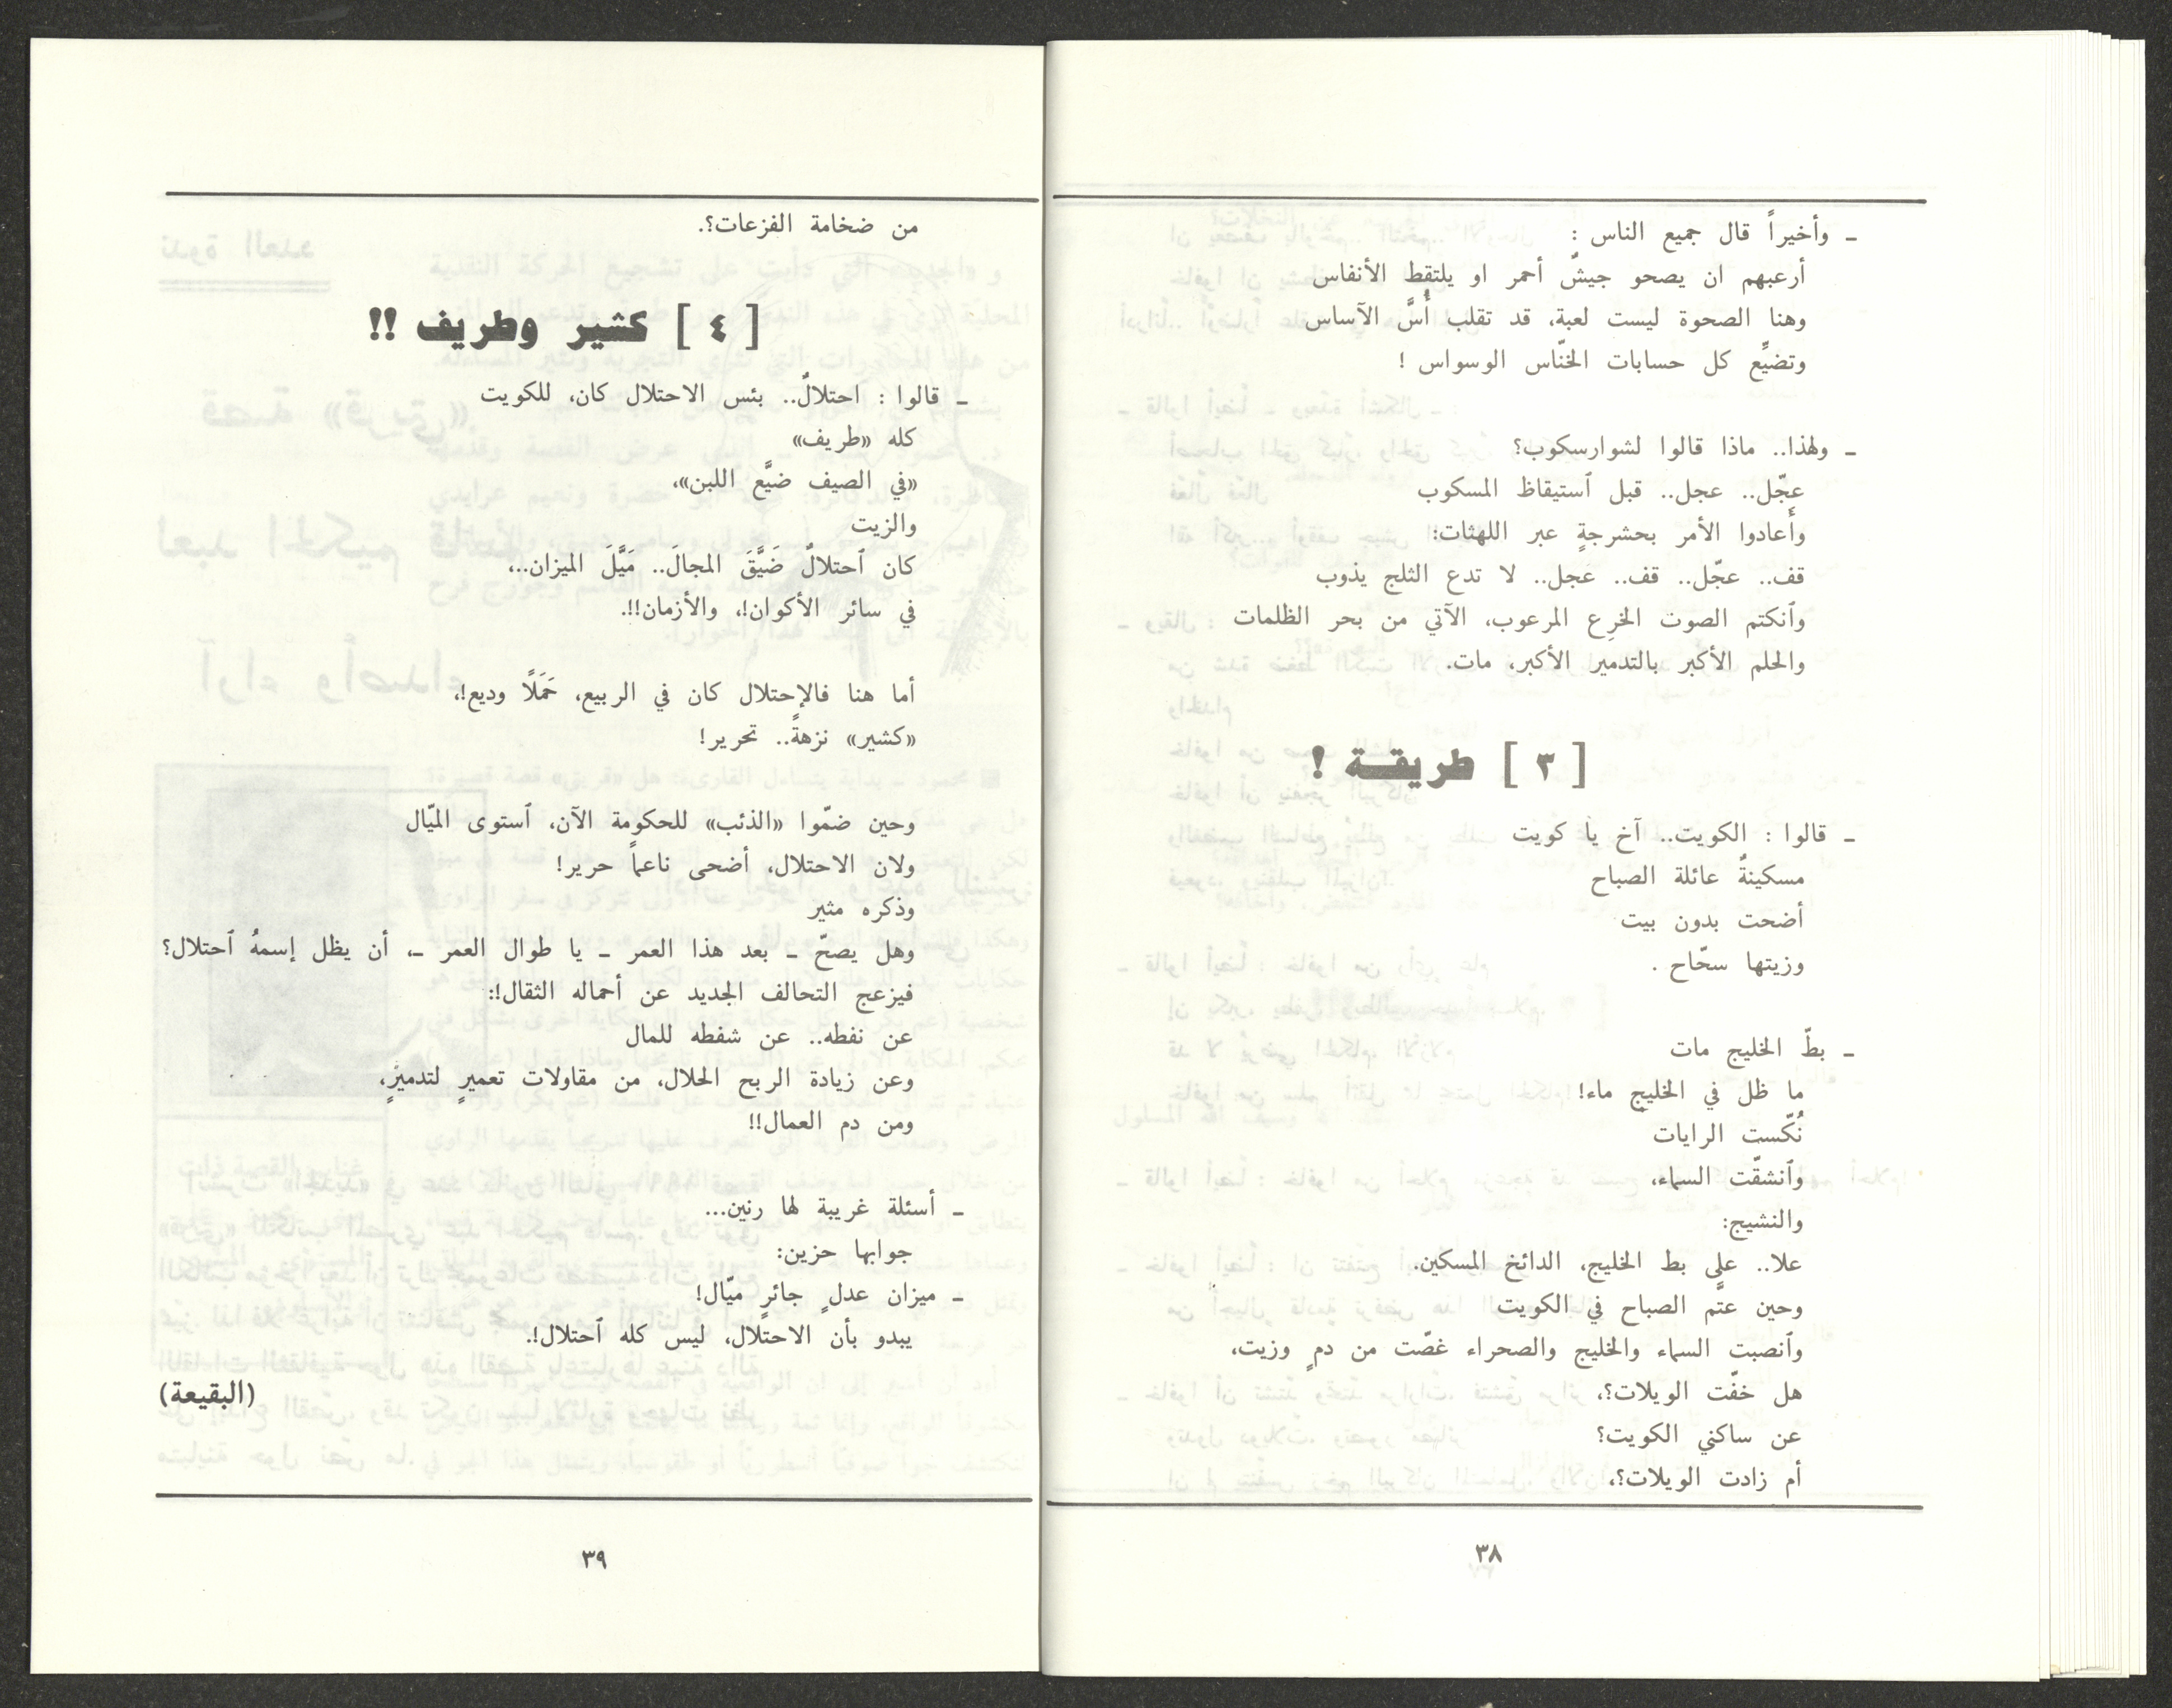 ـ وأخيراً قال جميع الناس :
أرعبهم ان يصحو جيشٌ أحمر او يلتقط الأنفاس
وهنا الصحوة ليست لعبة، قد تقلب أُسَّ الآساس
وتضيِّع كل حسابات الخنّاس الوسواس !
ـ ولهذا.. ماذا قالوا لشوارسكوب؟
عجّل.. عجل.. قبل ٱستيقاظ المسكوب
وأعادوا الأمر بحشرجةٍ عبر اللهثات:
قف.. عجّل.. قف.. عَجل.. لا تدع الثلج يذوب
وٱنكتم الصوت الخرِع المرعوب، الآتي من بحر الظلمات
والحلم الأكبر بالتدمير الأكبر، مات.
[ ٣ ] طريقـة !
ـ قالوا : الكويت.. آخ يا كويت
مسكينةٌ عائلة الصباح
أضحت بدون بيت
وزيتها سحّاح .
ـ بطّ الخليج مات
ما ظل في الخليج ماء!
نُكّست الرايات
وٱنشقّت السماء،
والنشيج:
علا.. على بط الخليج، الدائخ المسكين.
وحين عتَّم الصباح في الكويت
وٱنصبت السماء والخليج والصحراء غصّت من دمٍ وزيت،
هل خفّت الويلات؟،
عن ساكني الكويت؟
أم زادت الويلات؟،
٣٨
من ضخامة الفزعات؟.
[ ٤ ] كشير وطريف !!
ـ قالوا : احتلالٌ.. بئس الاحتلال كان، للكويت
كله «طريف»
«في الصيف ضيَّع اللبن»،
والزيت
كان ٱحتلالٌ ضَيَّقَ المجالَ.. مَيَّلَ الميزان..،
في سائر الأكوان!، والأزمان!!.
أما هنا فالإحتلال كان في الربيع، حَمَلًا وديع!،
«كشير» نزهةً.. تحرير!
وحين ضمّوا «الذئب» للحكومة الآن، ٱستوى الميّال
ولان الاحتلال، أضحى ناعماً حرير!
وذكره مثير
وهل يصحّ ـ بعد هذا العمر ـ يا طوال العمر ـ، أن يظل إسمهُ ٱحتلال؟
فيزعج التحالف الجديد عن أحماله الثقال!:
عن نفطه.. عن شفطه للمال
وعن زيادة الربح الحلال، من مقاولات تعميرٍ لتدميرٍ،
ومن دم العمال!!
ـ أسئلة غريبة لها رنين...
جوابها حزين:
ـ ميزان عدلٍ جائرٍ ميّال!
يبدو بأن الاحتلال، ليس كله ٱحتلال!.
(البقيعة)
٣٩